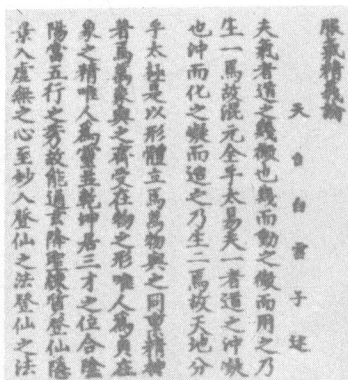 服氣精義論
天台白雲子述
夫氣者道之幾微也幾而動之微而用之乃
生一焉故混元全乎太易夫一者道之沖凝
也沖而化之凝而造之乃生二焉故天地分
乎太極是以形體立焉萬物與之同稟精神
著焉萬象與之齊受在物之形唯人為貞在
象之精唯人為靈並乾坤居三才之位合陰
陽當五行之秀故能通玄降聖鍊質登仙隱
景入虛無之心至妙入登仙之法登仙之法